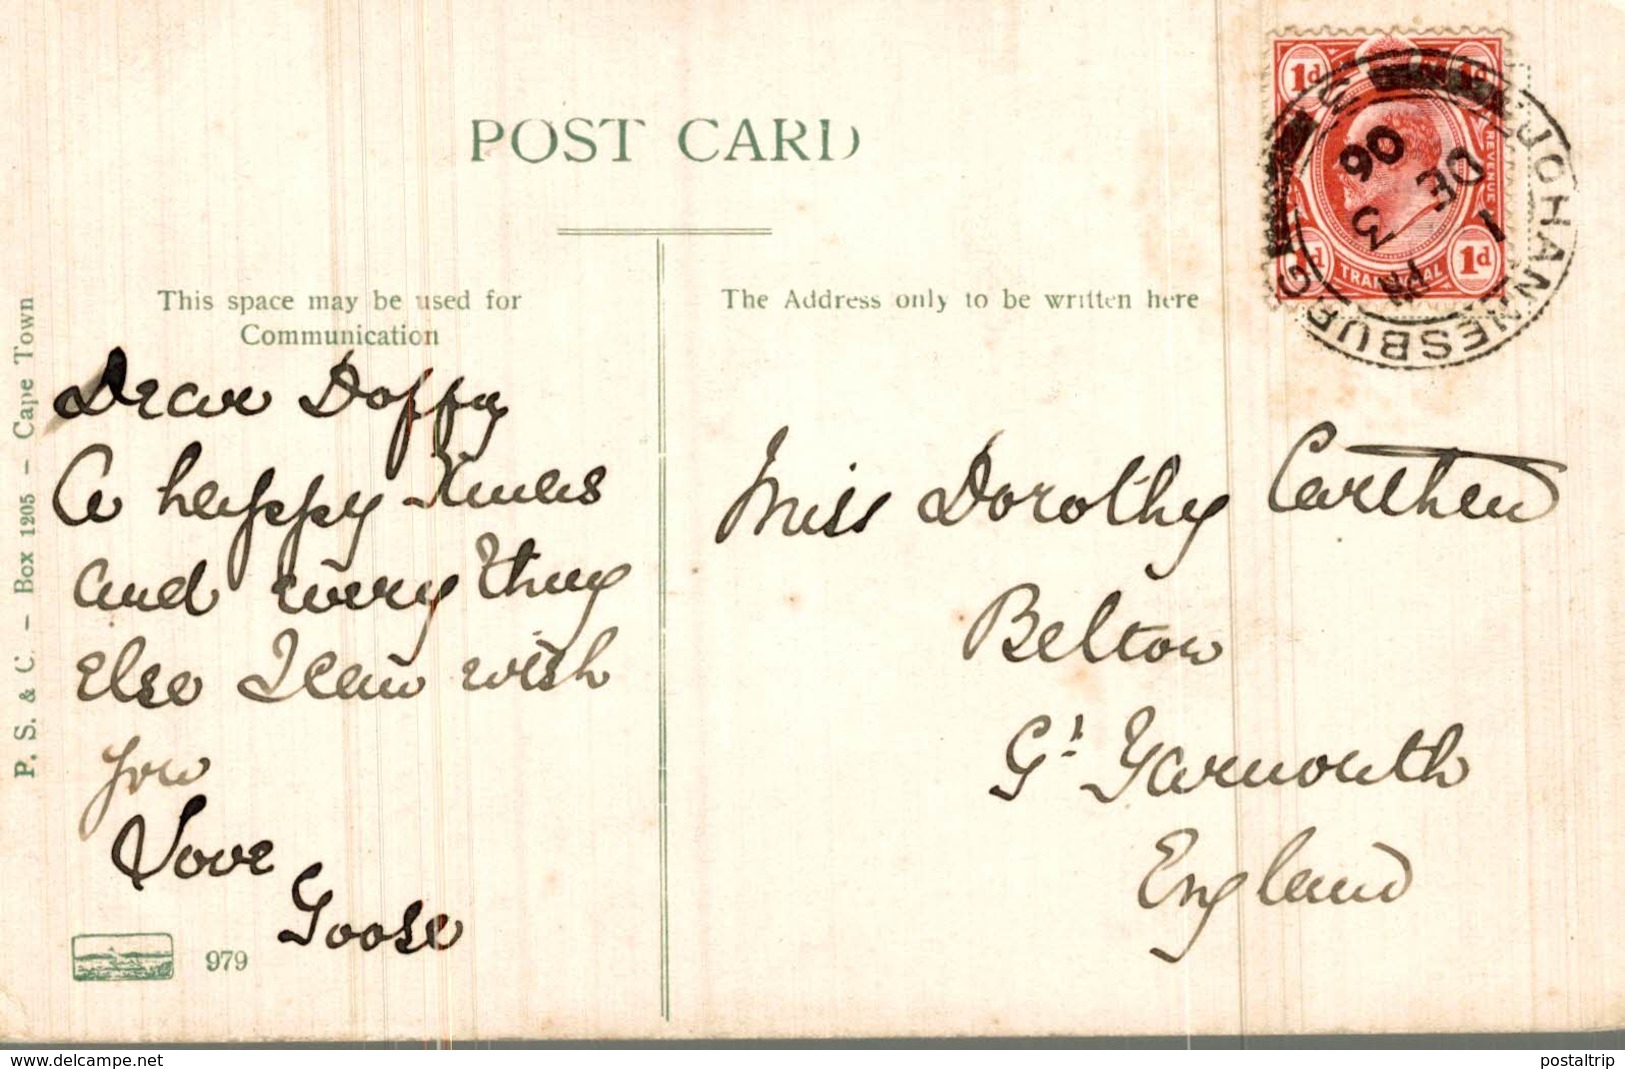 POST CARD
This space may be used for
Communication
The Address only to be written here
P. S. & C. – Box 1205 – Cape Town
Dear Doffy
A happy Xmas
and every thing
else I can wish
you
Love
Goose
979
Miss Dorothy
Belton
Gt Yarmouth
England
1d 1d
REVENUE
1d 1d
TRANSVAAL
JOHANNESBURG
1
DE
06
3
PM
delcampe.net
postaltrip